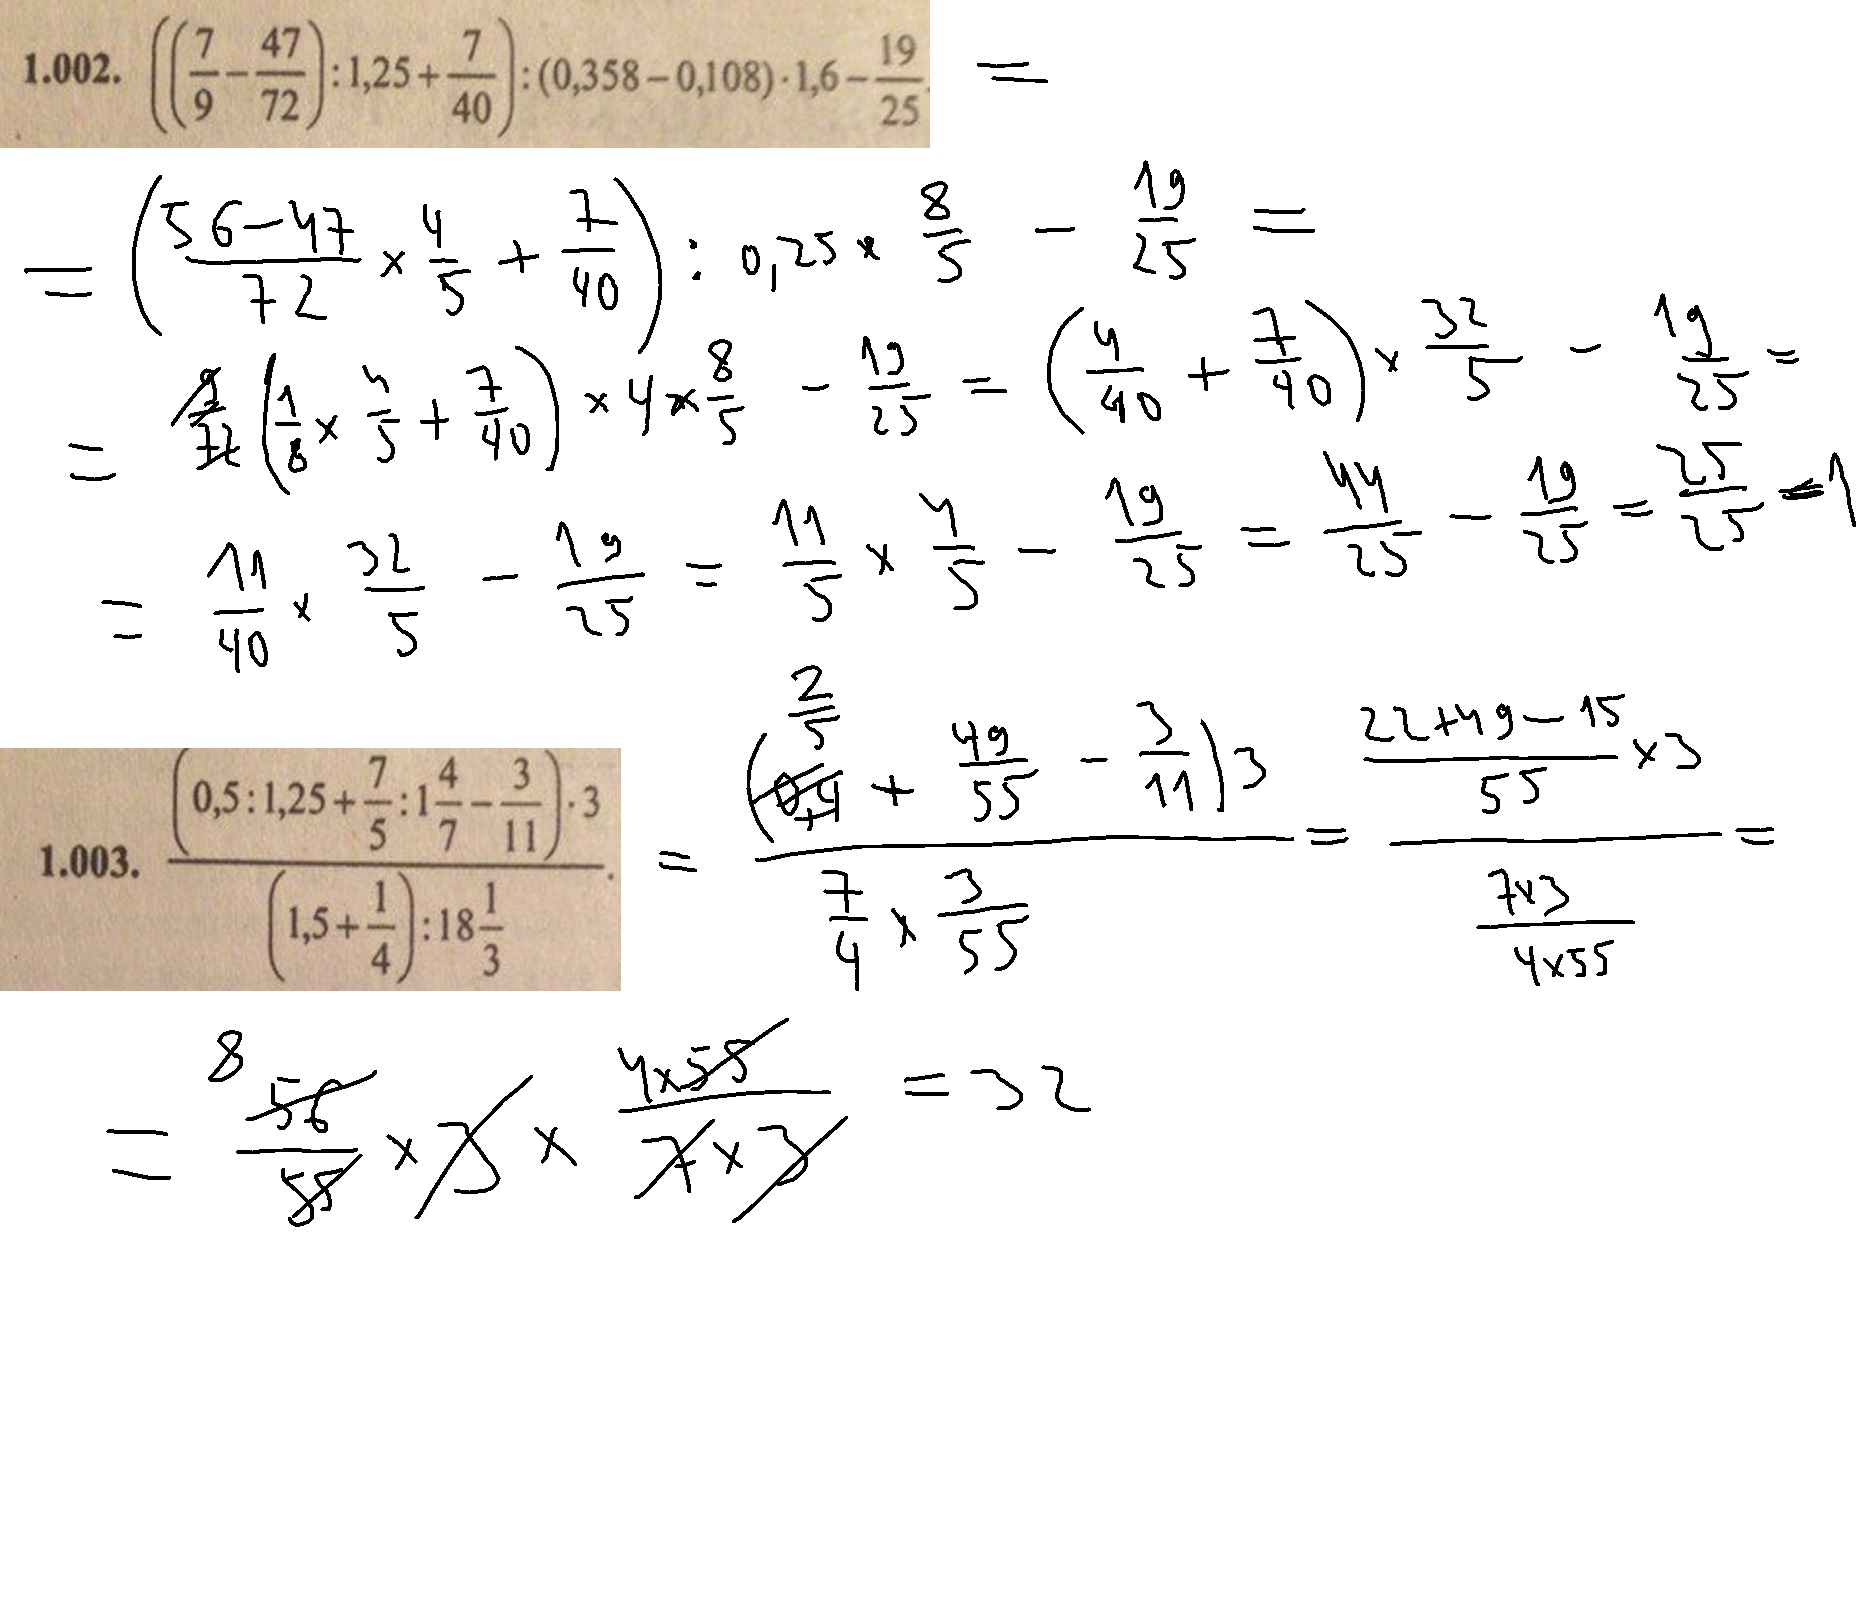 1.002. ((7/9 − 47/72) : 1,25 + 7/40) : (0,358 − 0,108) · 1,6 − 19/25. =
= ((56−47)/72 × 4/5 + 7/40) : 0,25 × 8/5 − 19/25 =
= 9/72 (1/8 × 4/5 + 7/40) × 4 × 8/5 − 19/25 = (4/40 + 7/40) × 32/5 − 19/25 =
= 11/40 × 32/5 − 19/25 = 11/5 × 4/5 − 19/25 = 44/25 − 19/25 = 25/25 = 1
1.003. ((0,5 : 1,25 + 7/5 : 1 4/7 − 3/11) · 3) / ((1,5 + 1/4) : 18 1/3). = ((2/5 0,4 + 49/55 − 3/11) 3) / (7/4 × 3/55) = ((22+49−15)/55 × 3) / ((7×3)/(4×55)) =
= 8 56/55 × 3 × (4×55)/(7×3) = 32